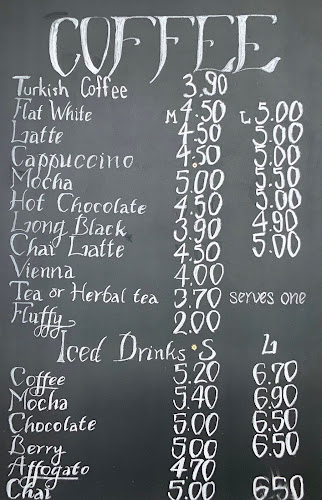 COFFEE
Turkish Coffee 3.90
Flat White M 4.50 L 5.00
Latte 4.50 5.00
Cappuccino 4.50 5.00
Mocha 5.00 5.50
Hot Chocolate 4.50 5.00
Long Black 3.90 4.90
Chai Latte 4.50 5.00
Vienna 4.00
Tea or Herbal tea 3.70 serves one
Fluffy 2.00
Iced Drinks • S L
Coffee 5.20 6.70
Mocha 5.40 6.90
Chocolate 5.00 6.50
Berry 5.00 6.50
Affogato 4.70
Chai 5.00 6.50